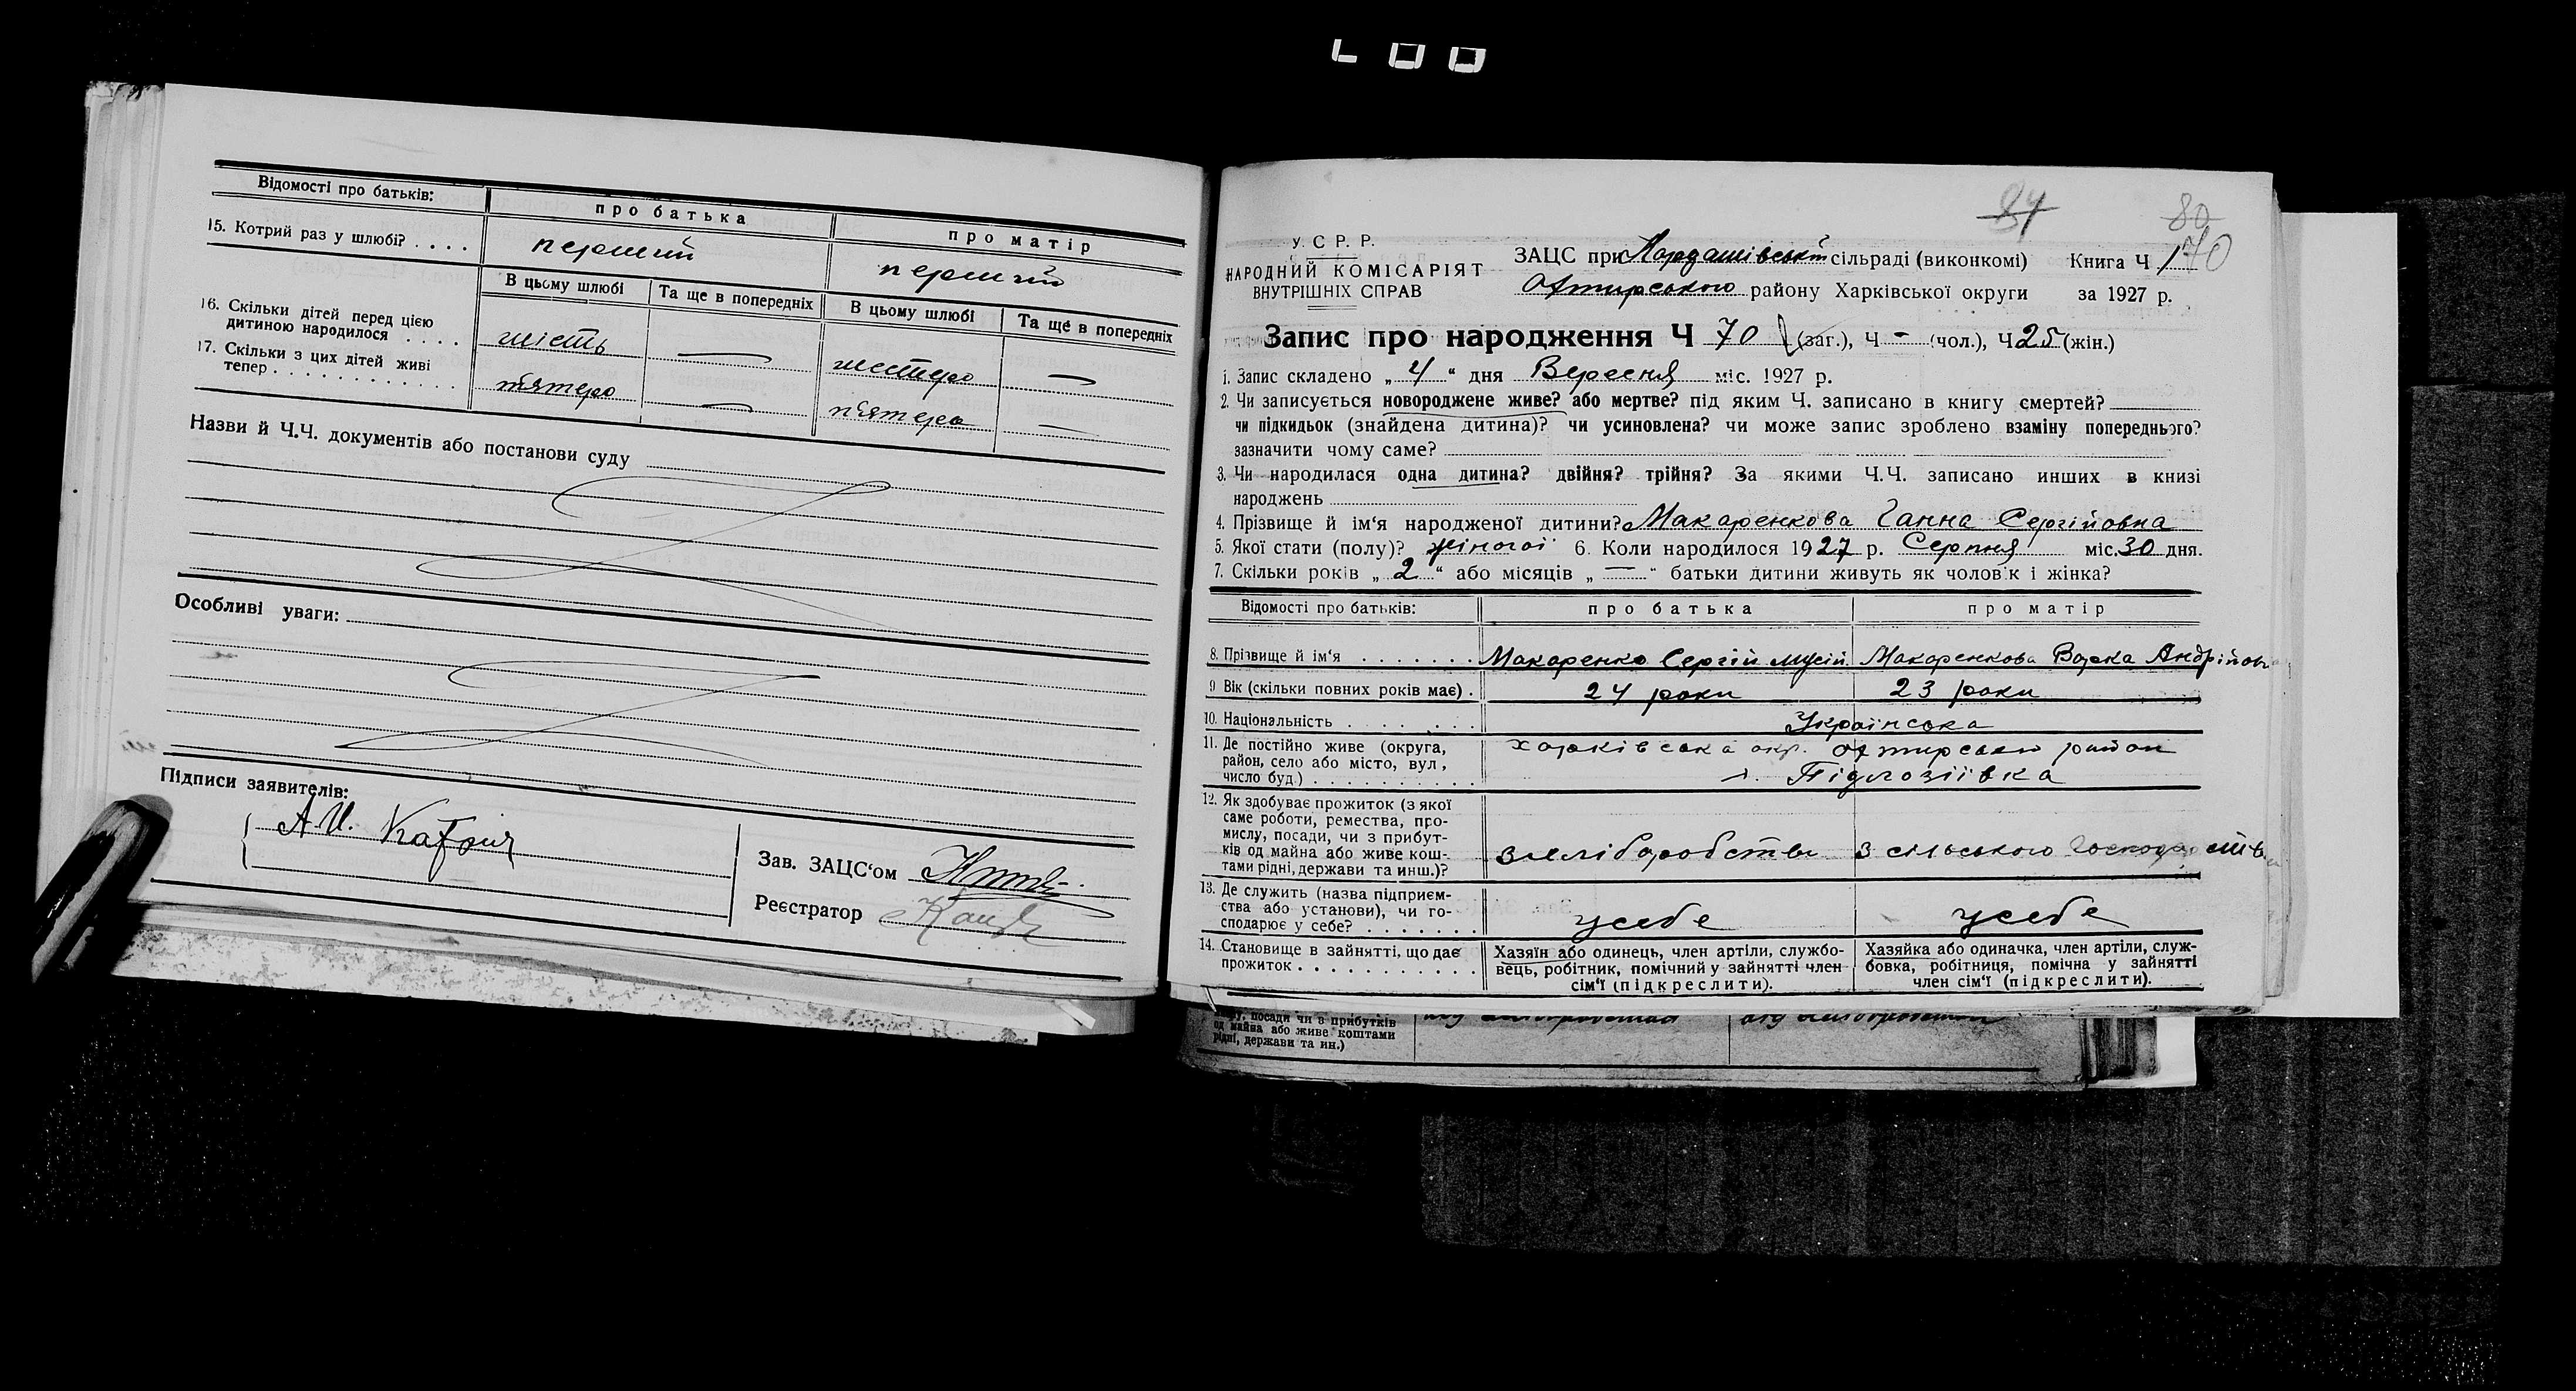 Відомості про батьків:
про батька
про матір
15. Котрий раз у шлюбі? . . . .
перший
перший
В цьому шлюбі
Та ще в попередніх
В цьому шлюбі
Та ще в попередніх
16. Скільки дітей перед цією
дитиною народилося . . . .
шість
—
шестеро
—
17. Скільки з цих дітей живі
тепер . . . . . . . . . . . . .
пятеро
—
пятеро
—
Назви й Ч.Ч. документів або постанови суду
Особливі уваги:
Підписи заявителів:
А. И.
Зав. ЗАЦС'ом
Реєстратор
84
80
70
У. С. Р. Р.
НАРОДНИЙ КОМІСАРІЯТ
ВНУТРІШНІХ СПРАВ
ЗАЦС при сільраді (виконкомі)
Книга Ч 1
Охтирського району Харківської округи
за 1927 р.
Запис про народження Ч 70 (заг.), Ч - (чол.), Ч 25 (жін.)
1. Запис складено „ 4 “ дня Вересня міс. 1927 р.
2. Чи записується новороджене живе? або мертве? під яким Ч. записано в книгу смертей?
чи підкидьок (знайдена дитина)? чи усиновлена? чи може запис зроблено взаміну попереднього?
зазначити чому саме?
3. Чи народилася одна дитина? двійня? трійня? За якими Ч.Ч. записано инших в книзі
народжень
4. Прізвище й ім‘я народженої дитини? Макаренкова Ганна Сергійовна
5. Якої стати (полу)? жіночої 6. Коли народилося 1927 р. Серпня міс. 30 дня.
7. Скільки років „ 2 “ або місяців „ — “ батьки дитини живуть як чоловік і жінка?
Відомості про батьків:
про батька
про матір
8. Прізвище й ім‘я . . . . . . .
Макаренко Сергій Мусій.
Макаренкова Варка Андрійовн
9 Вік (скільки повних років має) .
24 роки
23 роки
10. Національність . . . . . . .
Українська
11. Де постійно живе (округа,
район, село або місто, вул,
число буд.) . . . . . . . . . .
Харківська окр. Охтирськи район
Підлозіївка
12. Як здобуває прожиток (з якої
саме роботи, ремества, про-
мислу, посади, чи з прибут-
ків од майна або живе кош-
тами рідні, держави та инш.)?
з хліборобства
з сільського господарства
13. Де служить (назва підприєм-
ства або установи), чи го-
сподарює у себе? . . . . . . .
у себе
у себе
14. Становище в зайнятті, що дає
прожиток . . . . . . . . . . . .
Хазяїн або одинець, член артіли, службо-
вець, робітник, помічний у зайнятті член
сім‘ї (підкреслити).
Хазяйка або одиначка, член артіли, служ-
бовка, робітниця, помічна у зайнятті
член сім‘ї (підкреслити).
посади чи в прибутків
од майна або живе коштами
рідні, держави та ин.)